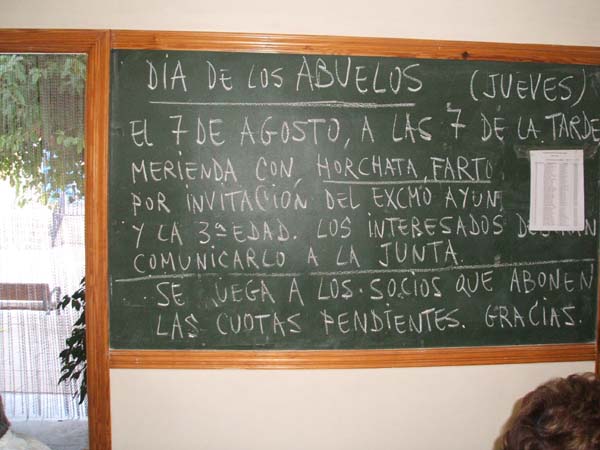 DIA DE LOS ABUELOS (JUEVES)
EL 7 DE AGOSTO, A LAS 7 DE LA TARDE
MERIENDA CON HORCHATA, FARTO
POR INVITACIÓN DEL EXCMO AYUN
Y LA 3ª EDAD. LOS INTERESADOS
COMUNICARLO A LA JUNTA.
SE UEGA A LOS SOCIOS QUE ABONEN
LAS CUOTAS PENDIENTES. GRACIAS.